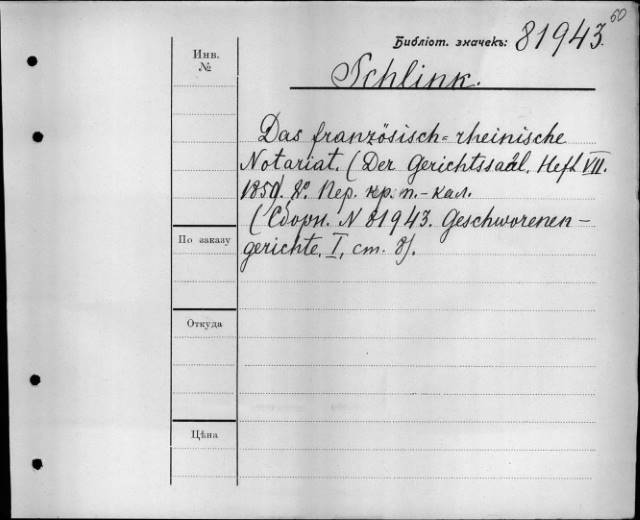 60
Библіот. значекъ: 81943.
Инв.
№
Schlink.
Das französisch-rheinische
Notariat. (Der Gerichtssaal, Heft VII.
1850. 8º. Пер. кр. п.-кал.
(Сборн. N 81943. Geschworenen-
gerichte, I, ст. 8).
По заказу
Откуда
Цѣна